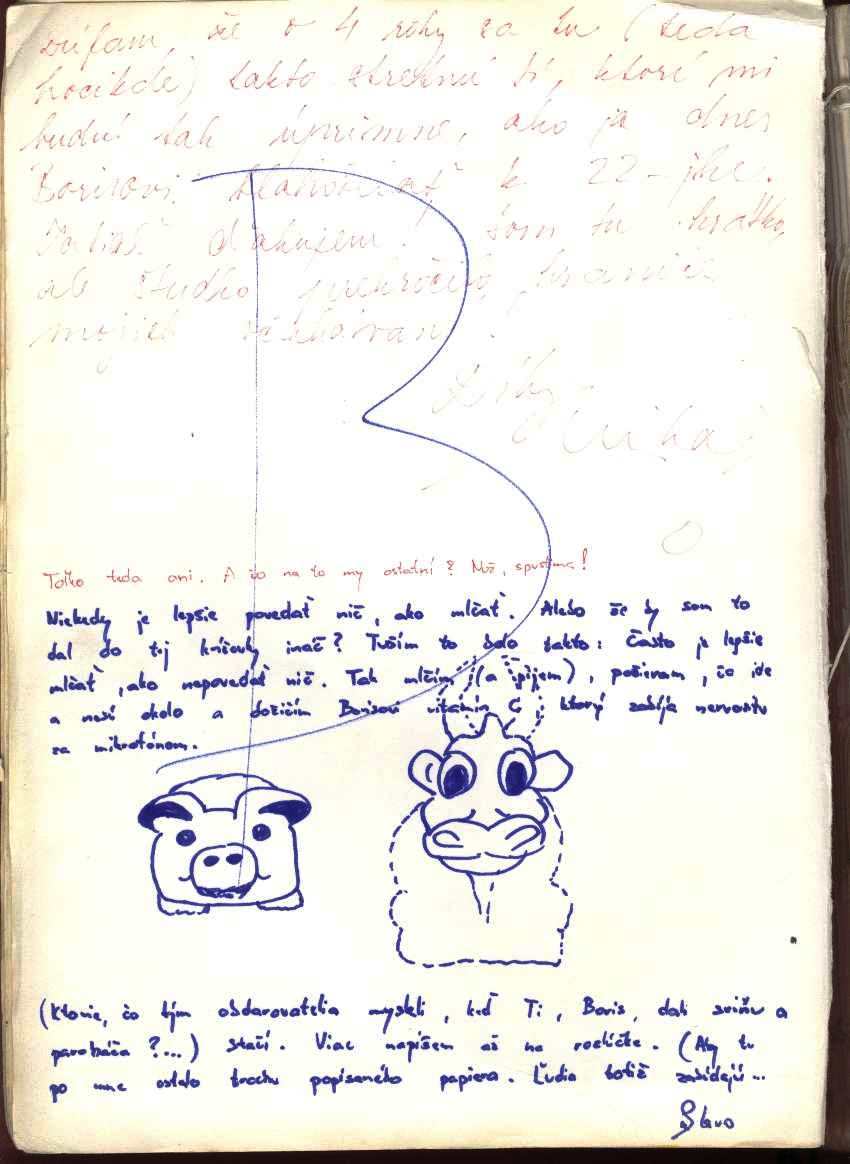 dúfam, že o 4 roky sa tu (teda
hocikde) takto stretnú tí, ktorí mi
budú tak úprimne, ako ja dnes
Borisovi blahoželať k 22-jke.
Zatiaľ ďakujem! Som tu krátko,
ale štúdio prekročilo hranice
mojich očakávaní.
B
Toľko teda ani. A čo na to my ostatní? Nož, spustime!
Niekedy je lepšie povedať nič, ako mlčať. Alebo že by som to
dal do tej knižočky ináč? Tuším to bolo takto: Často je lepšie
mlčať, ako nepovedať nič. Tak mlčím (a pijem), požieram, čo ide
a nesí okolo a dožičím Borisovi vitamín C, ktorý zabíja nervozitu
za mikrofónom.
(Ktovie, čo tým obdarovatelia mysleli, keď Ti, Boris, dali sviňu a
paroháča?...) stačí. Viac napíšem až na rozlúčke. (Aby tu
po mne ostalo trochu popísaného papiera. Ľudia totiž zabúdajú...
Slavo